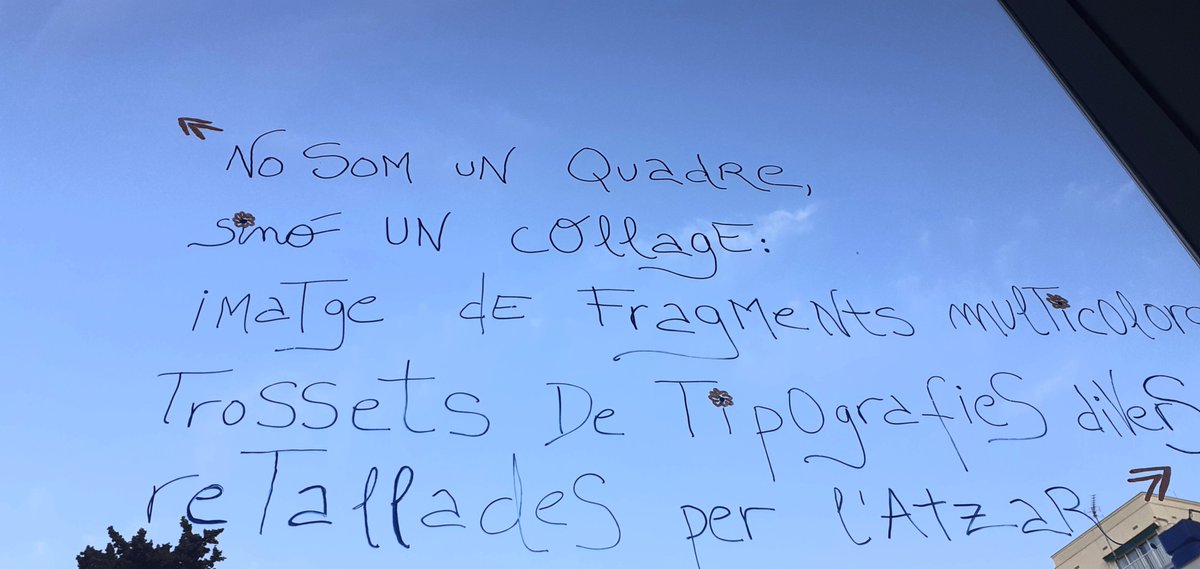 "No som un quadre,
sinó un collage:
imatge de fragments multicolors
trossets de tipografies divers
retallades per l'atzar"